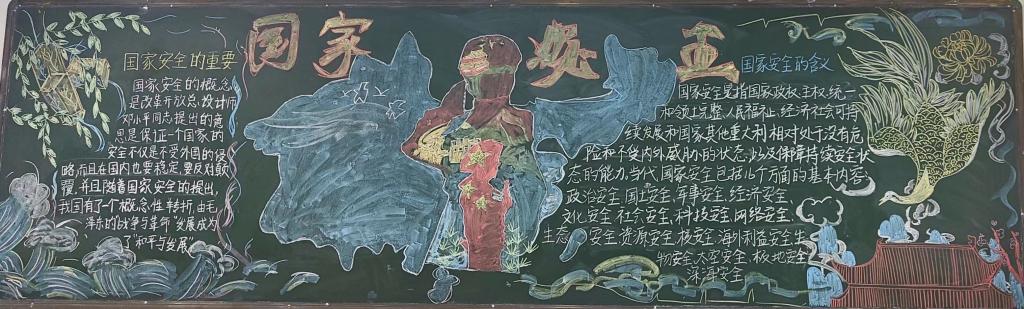 国家安全
国家安全的重要
国家安全的概念
是改革开放总设计师
邓小平同志提出的意
思是保证一个国家的
安全不仅是不受外国的侵
略,而且在国内也要稳定,要反对颠
覆,并且随着国家安全的提出,
我国有了一个概念性转折,由毛
泽东的"战争与革命"发展成为
了"和平与发展"
国家安全的含义
国家安全是指国家政权、主权、统一
和领土完整、人民福祉、经济社会可持
续发展和国家其他重大利相对处于没有危
险和不受内外威胁的状态,以及保障持续安全状
态的能力,当代国家安全包括16个方面的基本内容:
政治安全、国土安全、军事安全、经济安全、
文化安全、社会安全、科技安全、网络安全、
生态安全、资源安全、核安全、海外利益安全、生
物安全、太空安全、极地安全、
深海安全